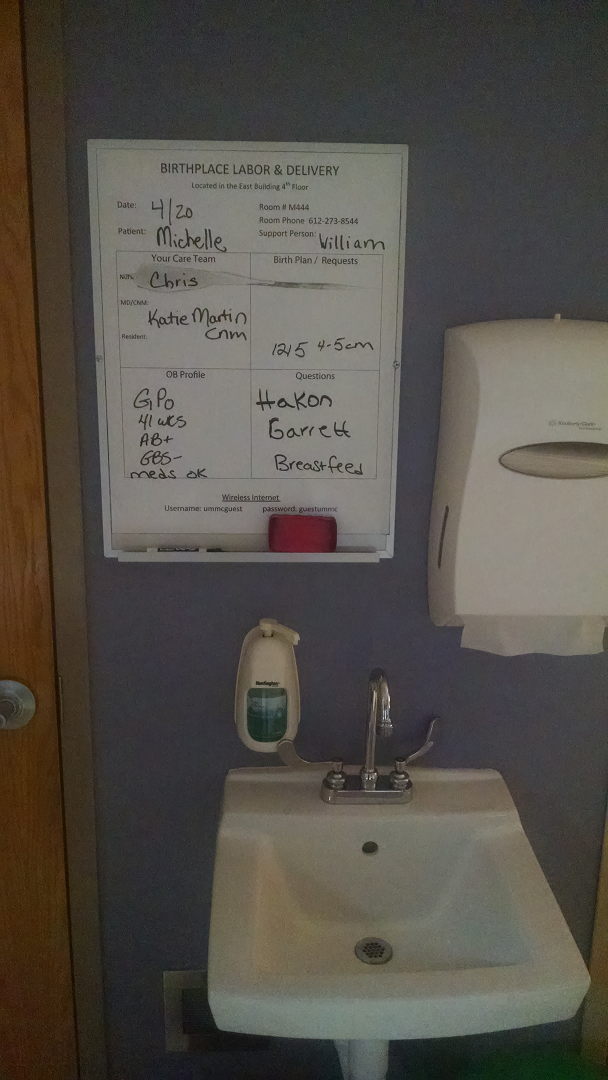 BIRTHPLACE LABOR & DELIVERY
Located in the East Building 4th Floor
Date: 4/20
Room # M444
Room Phone 612-273-8544
Patient: Michelle
Support Person: William
Your Care Team
Chris
MD/CNM: Katie Martin
Resident: CNM
Birth Plan / Requests
1215 4-5cm
OB Profile
G1P0
41 wks
AB+
GBS-
meds ok
Questions
Hakon
Garrett
Breastfeed
Wireless Internet
Username: ummcguest password: guestummc
Kimberly-Clark